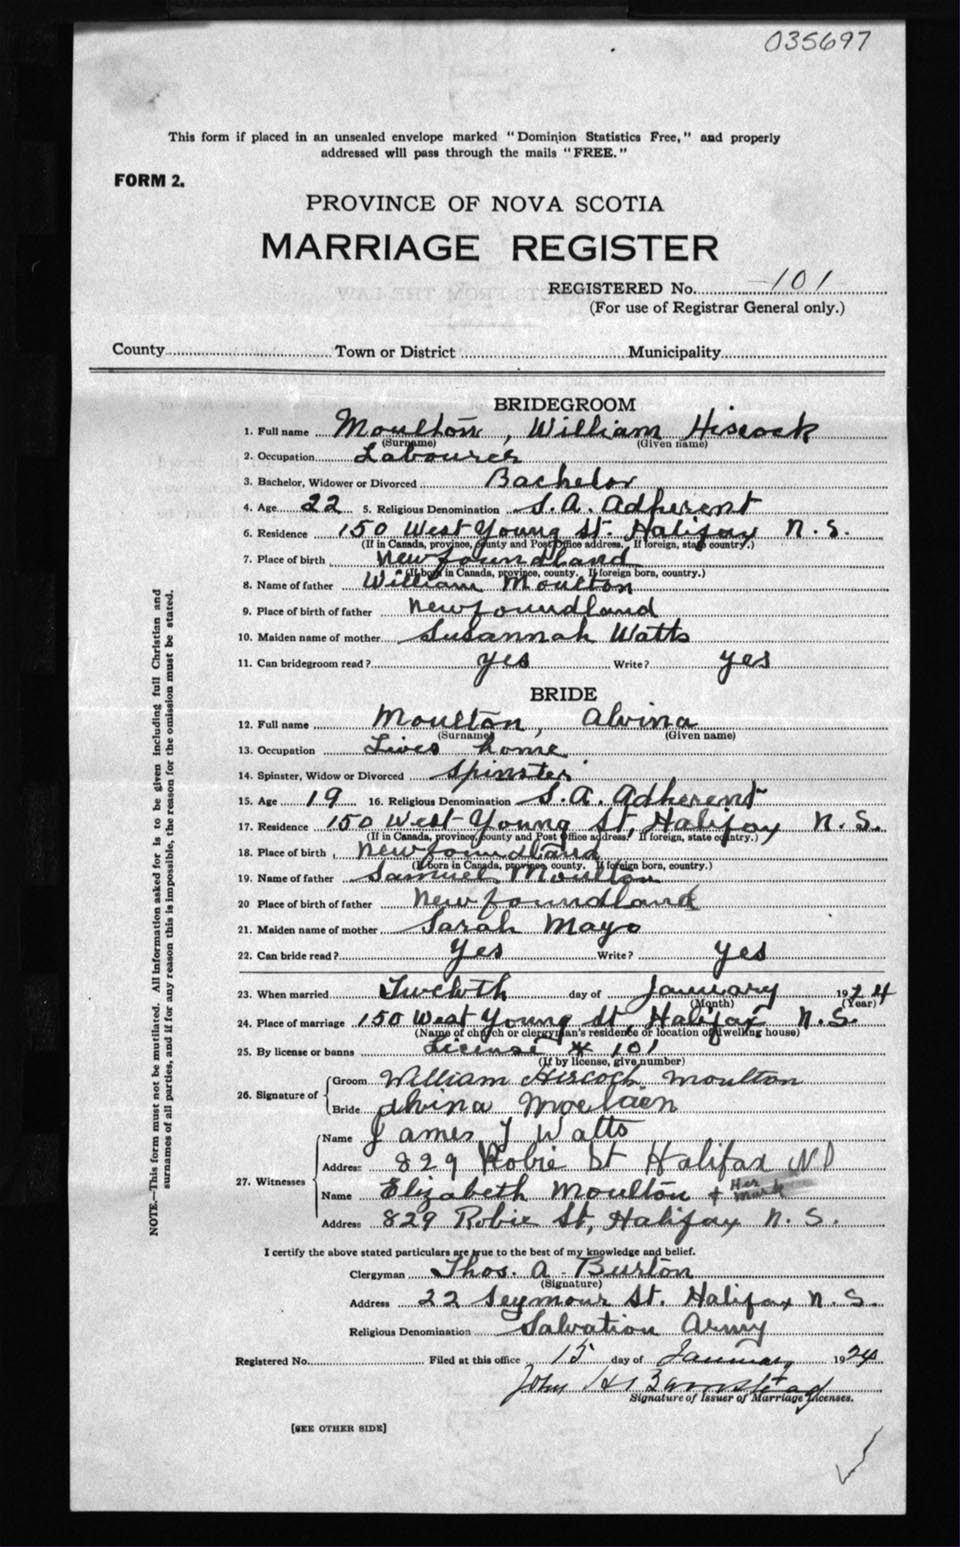 035697
This form if placed in an unsealed envelope marked "Dominion Statistics Free," and properly
addressed will pass through the mails "FREE."
FORM 2.
PROVINCE OF NOVA SCOTIA
MARRIAGE REGISTER
REGISTERED No. 101
(For use of Registrar General only.)
County Town or District Municipality
BRIDEGROOM
1. Full name Moulton, William Hiscock
(Surname) (Given name)
2. Occupation Labourer
3. Bachelor, Widower or Divorced Bachelor
4. Age 22 5. Religious Denomination S.A. Adherent
6. Residence 150 West Young St. Halifax N.S.
(If in Canada, province, county and Post Office address. If foreign, state country.)
7. Place of birth Newfoundland
(If born in Canada, province, county. If foreign born, country.)
8. Name of father William Moulton
9. Place of birth of father Newfoundland
10. Maiden name of mother Susannah Watts
11. Can bridegroom read? yes Write? yes
BRIDE
12. Full name Moulton, Alvina
(Surname) (Given name)
13. Occupation Lives home
14. Spinster, Widow or Divorced Spinster
15. Age 19 16. Religious Denomination S.A. Adherent
17. Residence 150 West Young St, Halifax N.S.
(If in Canada, province, county and Post Office address. If foreign, state country.)
18. Place of birth Newfoundland
(If born in Canada, province, county. If foreign born, country.)
19. Name of father Samuel Moulton
20 Place of birth of father Newfoundland
21. Maiden name of mother Sarah Mayo
22. Can bride read? Yes Write? Yes
23. When married Twelvth day of January 1924
(Month) (Year)
24. Place of marriage 150 West Young St, Halifax N.S.
(Name of church or clergyman's residence or location of dwelling house)
25. By license or banns License # 101
(If by license, give number)
26. Signature of Groom William Hiscock Moulton
Bride Alvina
27. Witnesses Name James J Watts
Address 829 Robie St Halifax
Name Elizabeth Moulton + Her mark
Address 829 Robie St, Halifax N.S.
I certify the above stated particulars are true to the best of my knowledge and belief.
Clergyman Thos. A. Burton
(Signature)
Address 22 Seymour St. Halifax N.S.
Religious Denomination Salvation Army
Registered No. Filed at this office 15 day of January 1924
John H Barnstead
Signature of Issuer of Marriage Licenses.
[SEE OTHER SIDE]
NOTE.—This form must not be mutilated. All information asked for is to be given including full Christian and
surnames of all parties, and if for any reason this is impossible, the reason for the omission must be stated.